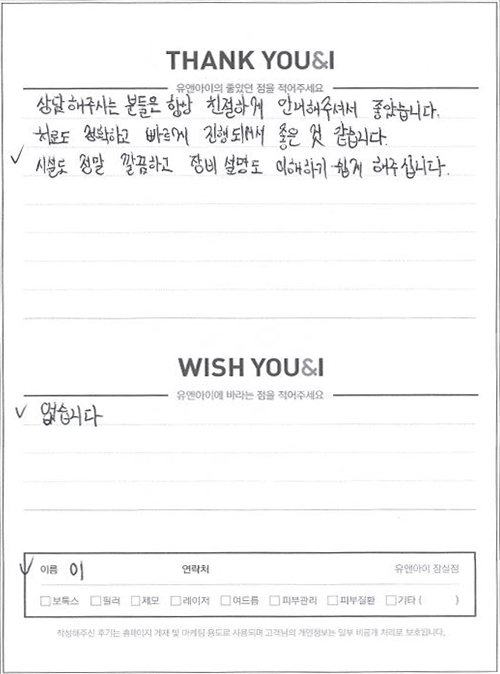 THANK YOU&I
유앤아이의 좋았던 점을 적어주세요
상담해주시는 분들은 항상 친절하게 안내해주셔서 좋았습니다.
치료도 정확하고 빠르게 진행되어서 좋은 것 같습니다.
시설도 정말 깔끔하고 장비 설명도 이해하기 쉽게 해주십니다.
WISH YOU&I
유앤아이에 바라는 점을 적어주세요
없습니다
이름 이 연락처 유앤아이 잠실점
보톡스 필러 제모 레이저 여드름 피부관리 피부질환 기타 ( )
작성해주신 후기는 홈페이지 게재 및 마케팅 용도로 사용되며 고객님의 개인정보는 일부 비공개 처리로 보호됩니다.